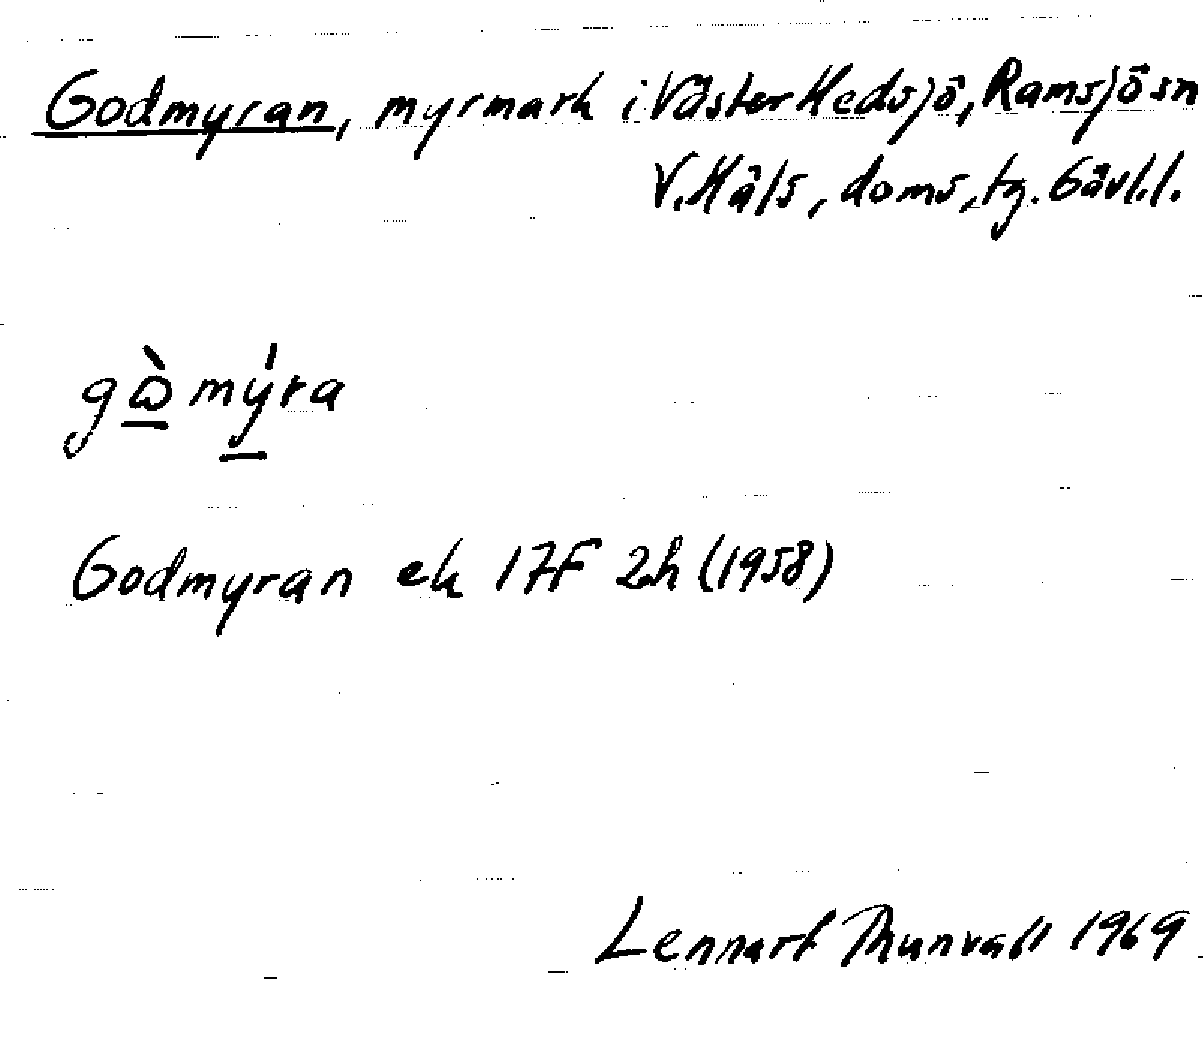 Godmyran, myrmark i Västerhedsjö, Ramsjösn
V. Häls, doms, tg. Gävl.l.
gὼmýra
Godmyran ek 17F 2h (1958)
Lennart Thunvall 1969